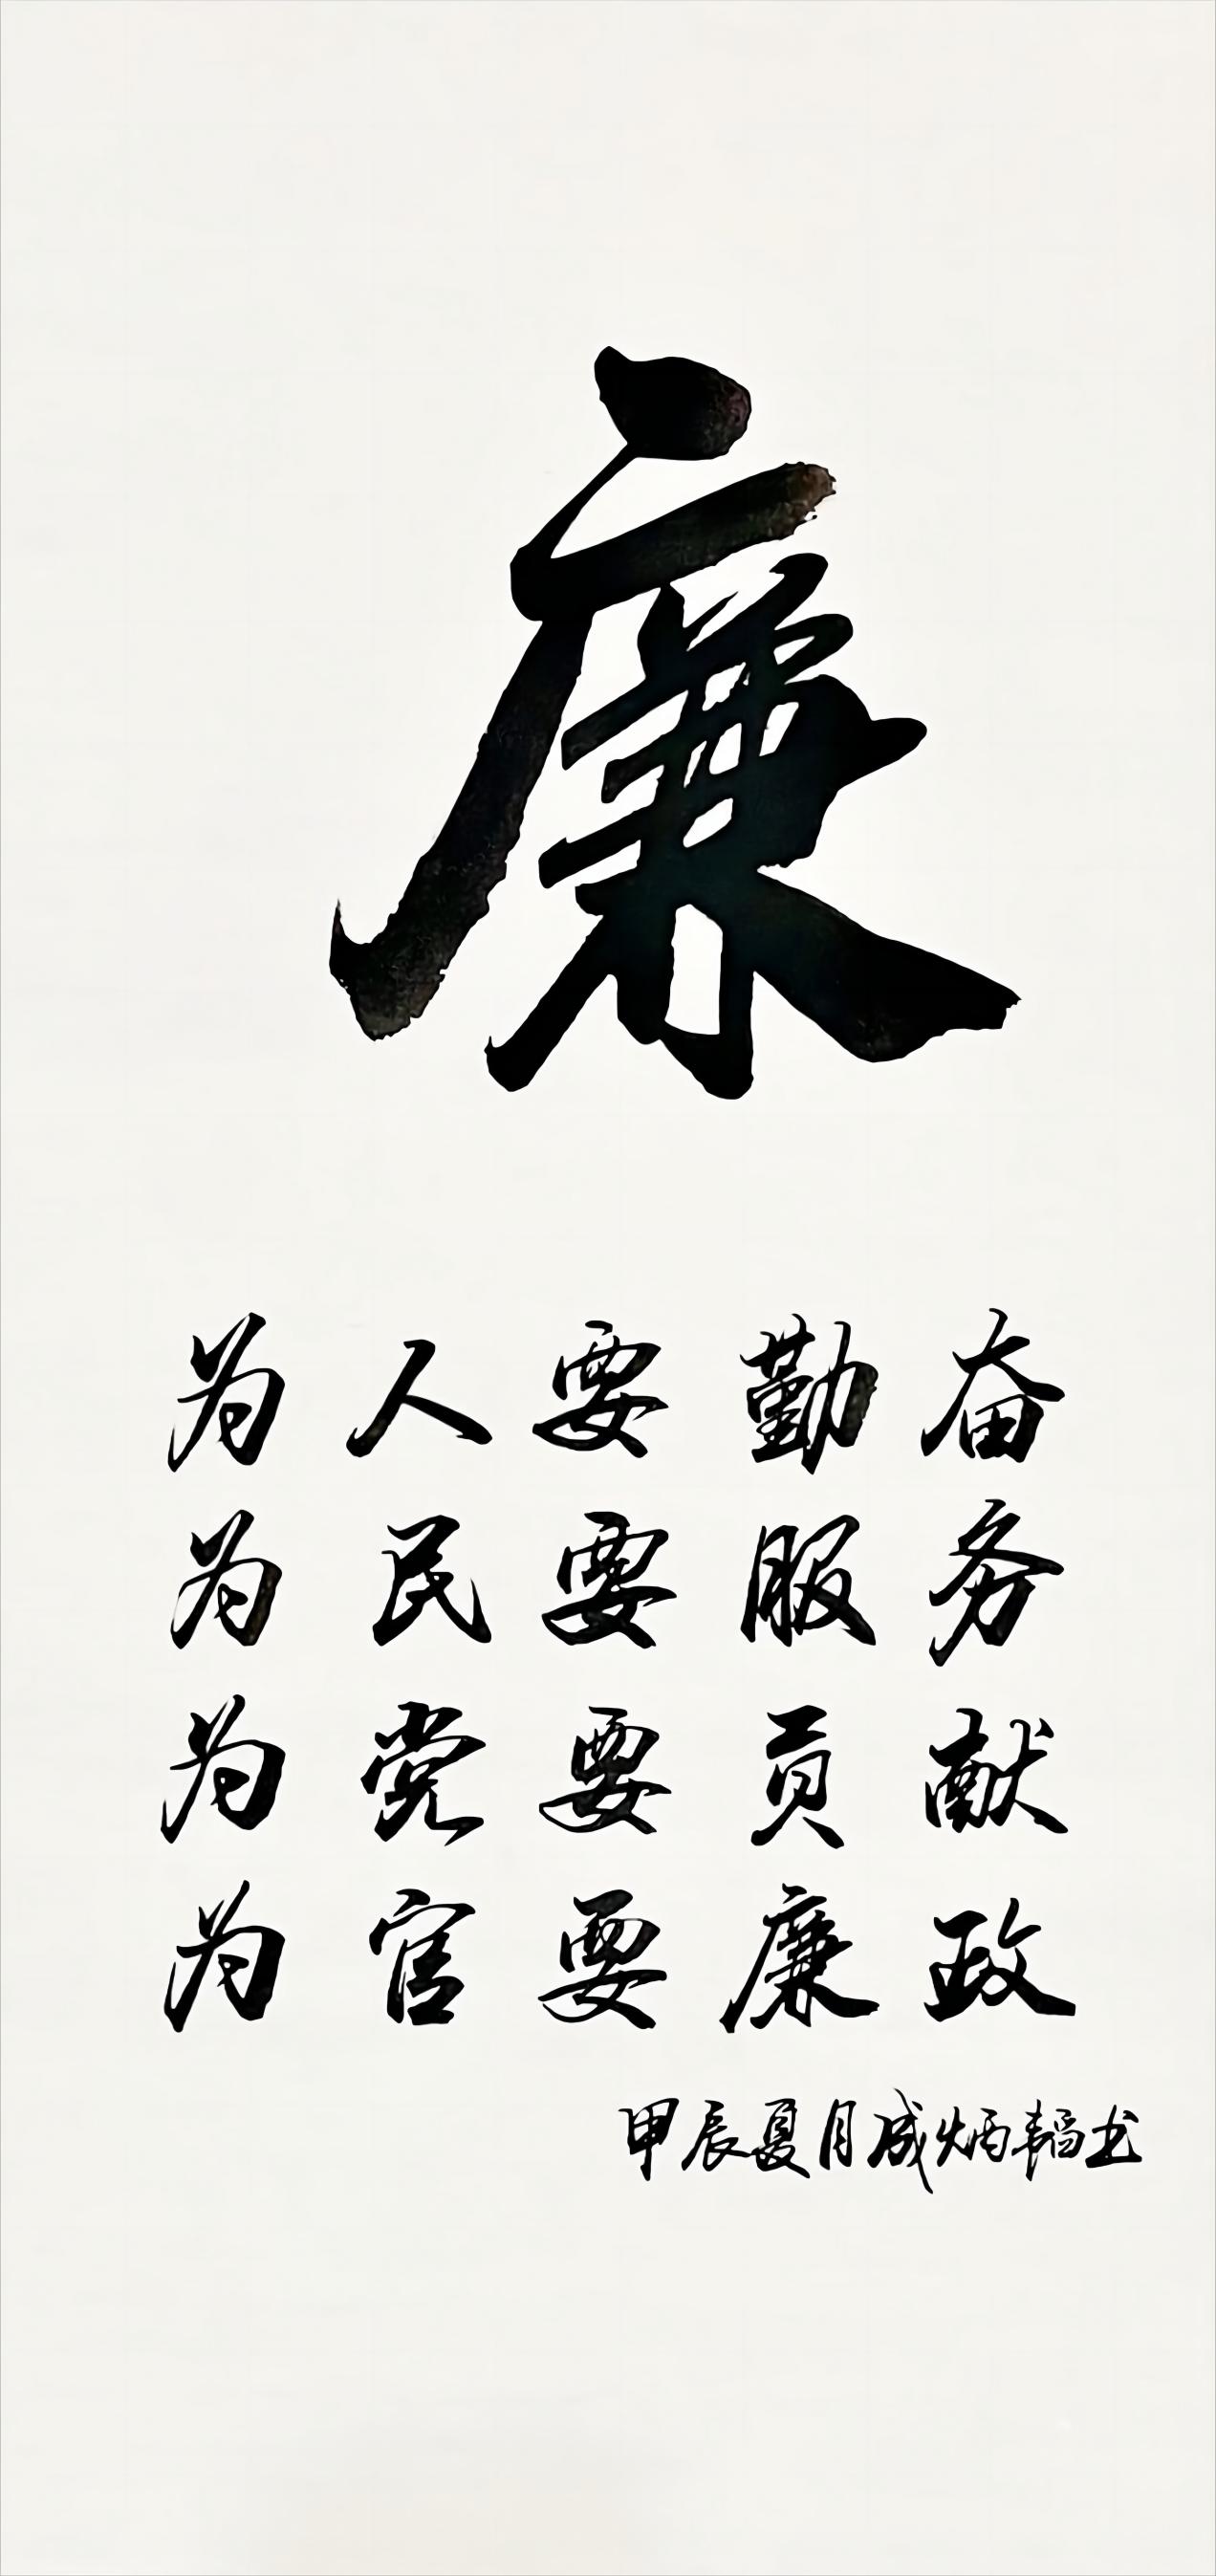 廉
为人要勤奋
为民要服务
为党要贡献
为官要廉政
甲辰夏月成炳韬书